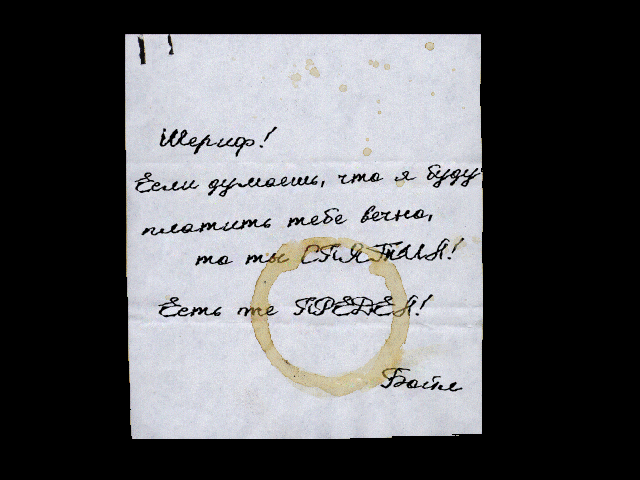 Шериф!
Если думаешь, что я буду
платить тебе вечно,
то ты СПЯТИЛ!
Есть же ПРЕДЕЛ!
Бойл